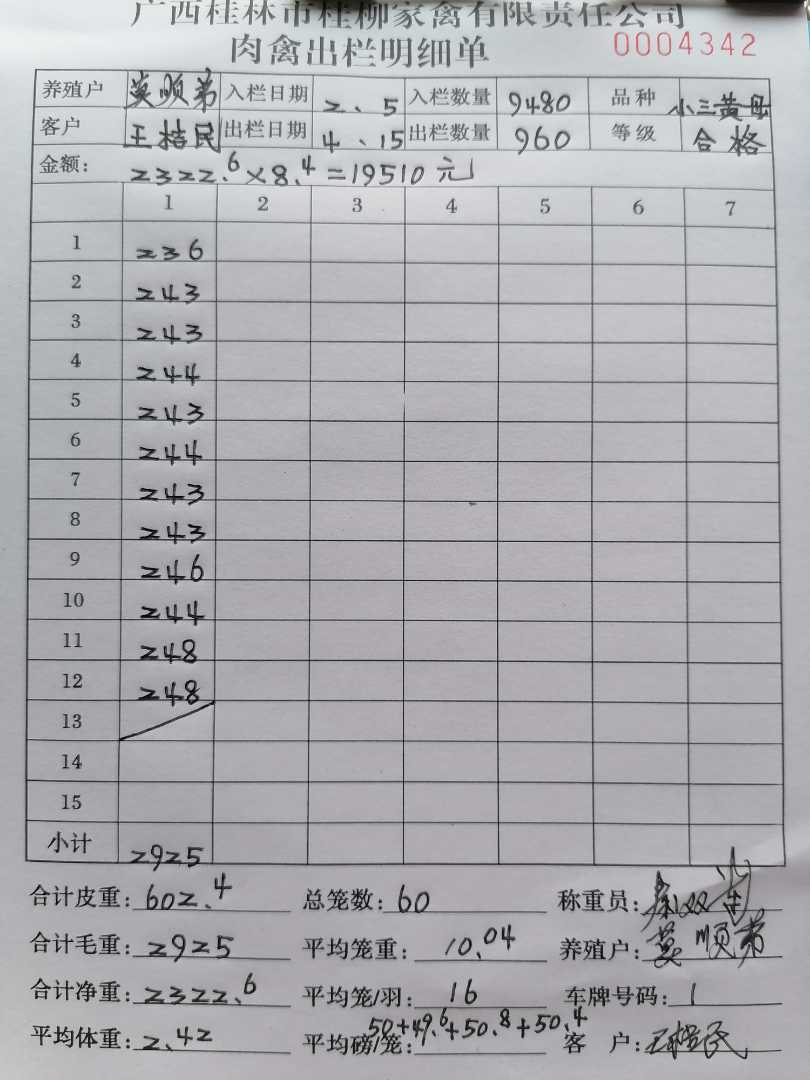 广西桂林市桂柳家禽有限责任公司
肉禽出栏明细单 0004342
养殖户 莫顺弟 入栏日期 2、5 入栏数量 9480 品种 小三黄母
客户 王桔民 出栏日期 4、15 出栏数量 960 等级 合格
金额: 2322.6×8.4=19510元
1 2 3 4 5 6 7
1 236
2 243
3 243
4 244
5 243
6 244
7 243
8 243
9 246
10 244
11 248
12 248
13
14
15
小计 2925
合计皮重: 602.4 总笼数: 60 称重员:
合计毛重: 2925 平均笼重: 10.04 养殖户: 莫顺弟
合计净重: 2322.6 平均笼/羽: 16 车牌号码: 1
平均体重: 2.42 平均磅/笼: 50+49.6+50.8+50.4 客 户: 王桔民